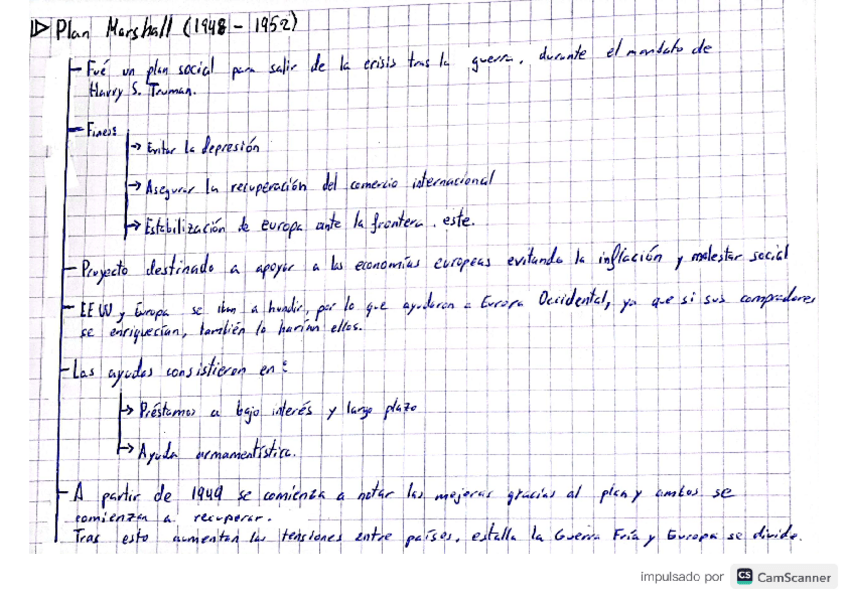 Plan Marshall (1948 - 1952)
Fué un plan social para salir de la crisis tras la guerra, durante el mandato de
Harry S. Truman.
Fines:
→ Evitar la depresión
→ Asegurar la recuperación del comercio internacional
→ Estabilización de europa ante la frontera este.
Proyecto destinado a apoyar a las economías europeas evitando la inflación y malestar social
EEUU y Europa se iban a hundir, por lo que ayudaron a Europa Occidental, ya que si sus compradores
se enriquecían, también lo harían ellos.
Las ayudas consistieron en:
→ Préstamos a bajo interés y largo plazo
→ Ayuda armamentística.
A partir de 1949 se comienza a notar las mejoras gracias al plan y ambos se
comienzan a recuperar.
Tras esto aumentan las tensiones entre países, estalla la Guerra Fría y Europa se divide.
impulsado por CS CamScanner